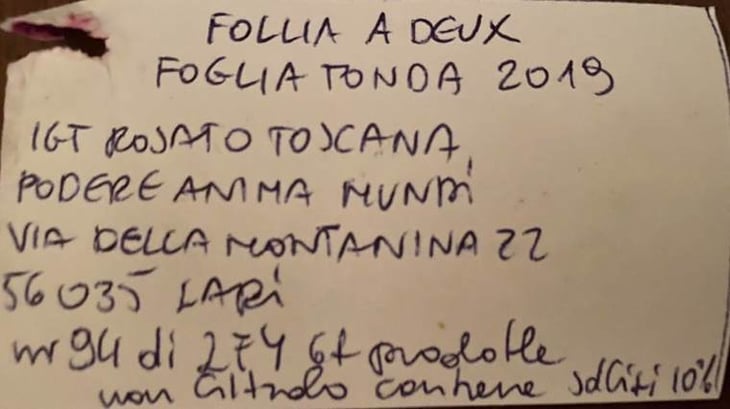 FOLLIA A DEUX
FOGLIA TONDA 2019
IGT ROSATO TOSCANA,
PODERE ANIMA MUNDI
VIA DELLA MONTANINA 22
56035 LARI
nr 94 di 274 bt prodotte
non filtrato contiene solfiti 10%